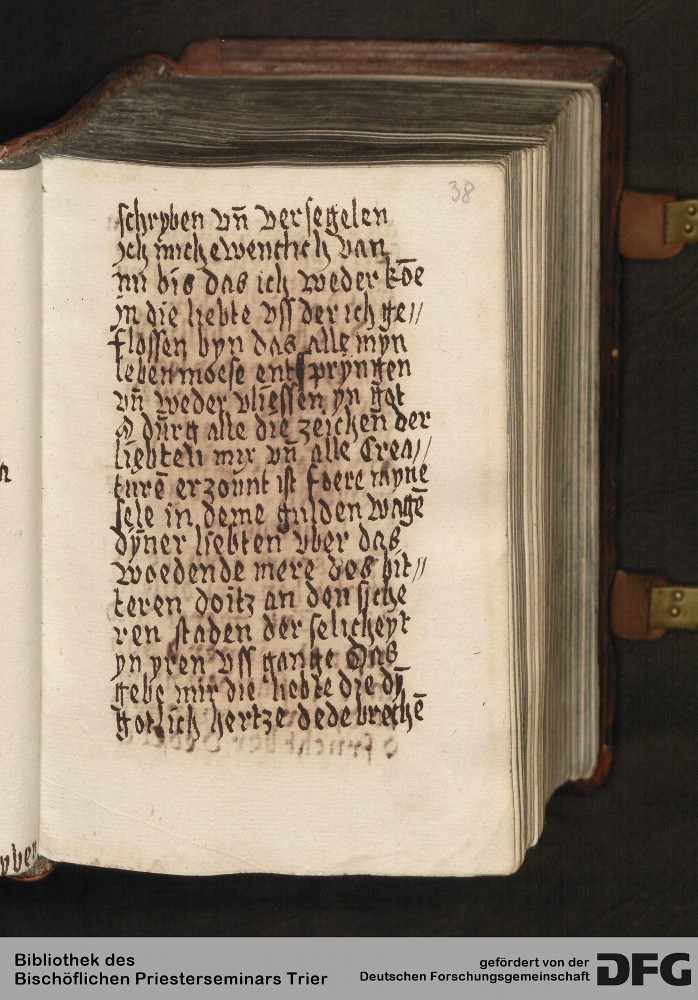 38
schryben vn̄ versegelen
ich mich ewentlich van
nū bis das ich weder kōe
jn die liebte vss der ich ge//
flossen byn das alle myn
leben moese entspryngen
vn̄ weder vliessen yn got
durg alle die zeichen der
liebten mir vn̄ alle Crea//
turē erzount ist foere myne
sele in deme gulden wagē
dyner liebten vber das
woedende mere dos bit//
teren doitz an den siche
ren staden der selicheyt
yn yren vss gange Das
gebe mir die liebte die dȳ
gotlich hertze dede brechē
Bibliothek des
Bischöflichen Priesterseminars Trier
gefördert von der
Deutschen Forschungsgemeinschaft
DFG